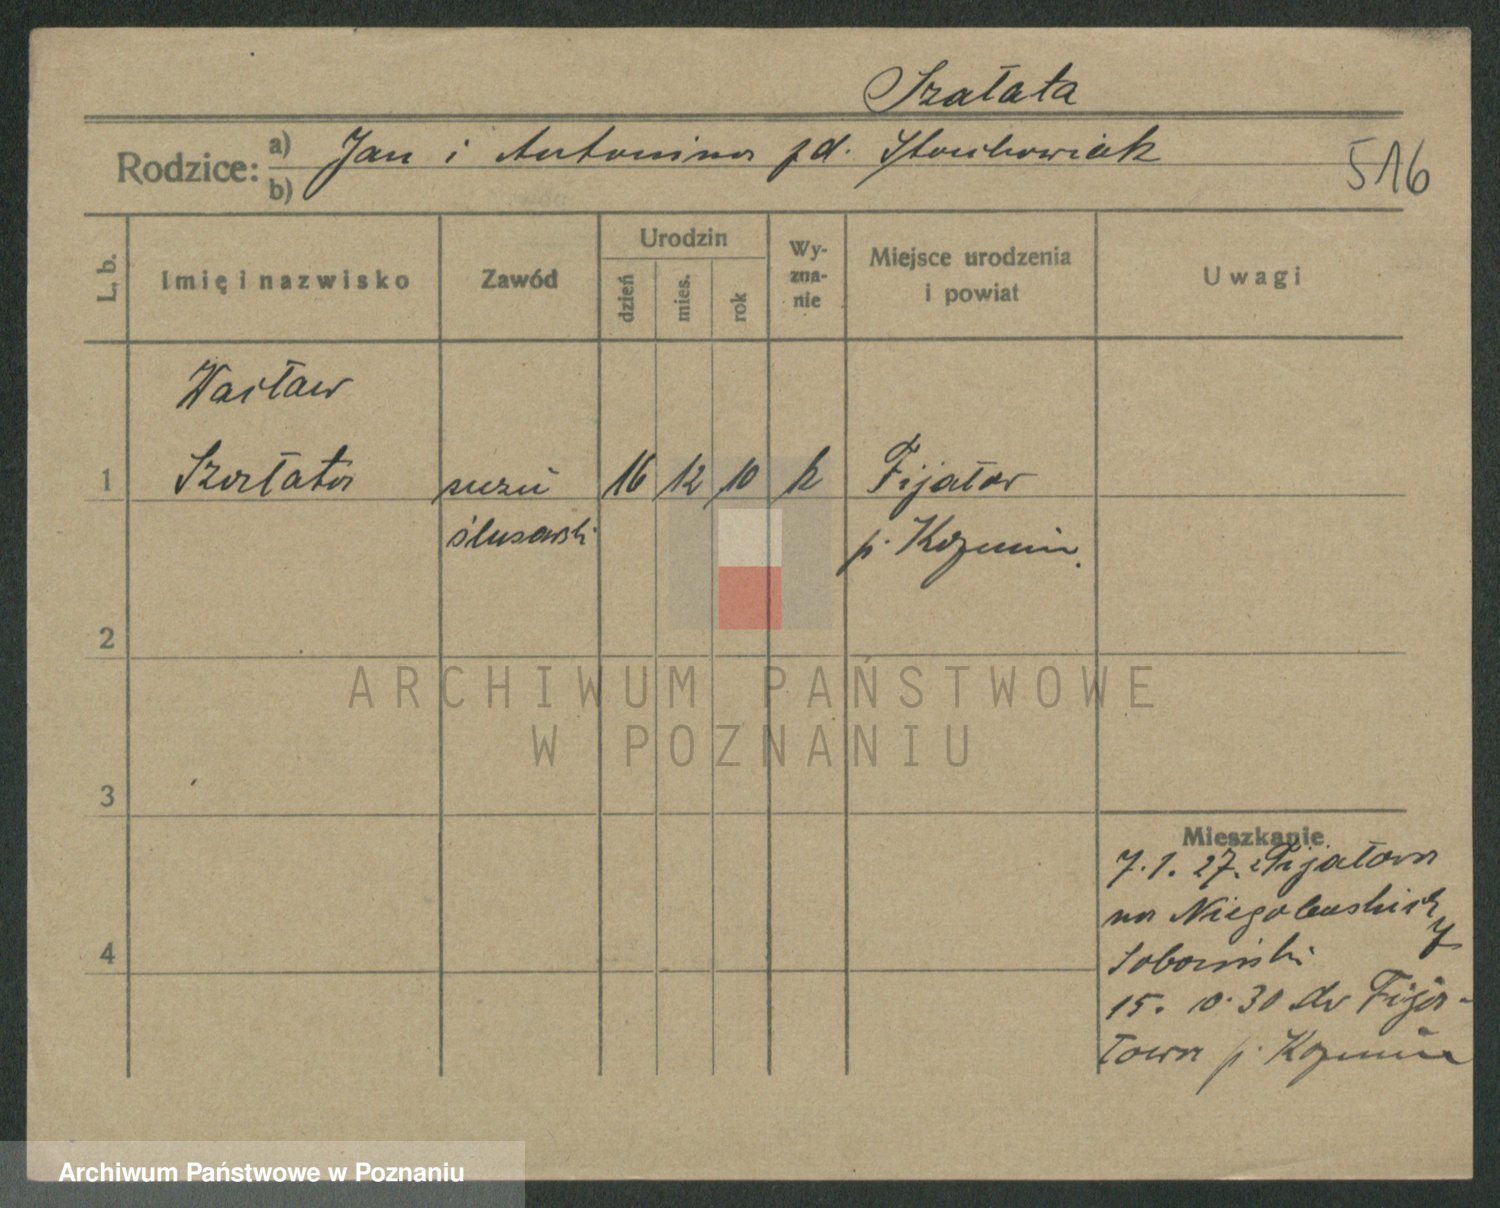 Szałata
Rodzice: a) Jan i Antonina zd. Stachowiak
b)
516
L. b. Imię i nazwisko Zawód Urodzin dzień mies. rok Wyznanie Miejsce urodzenia i powiat Uwagi
Wacław
1 Szałata uczeń 16 12 10 k Fijałów
ślusarski p. Koźmin.
2
ARCHIWUM PAŃSTWOWE
W POZNANIU
3
Mieszkanie
7.1.27. z Fijałowa
na Niegolewskich 7
15. 30 do Fija-
4
łowa p. Koźmin
Archiwum Państwowe w Poznaniu